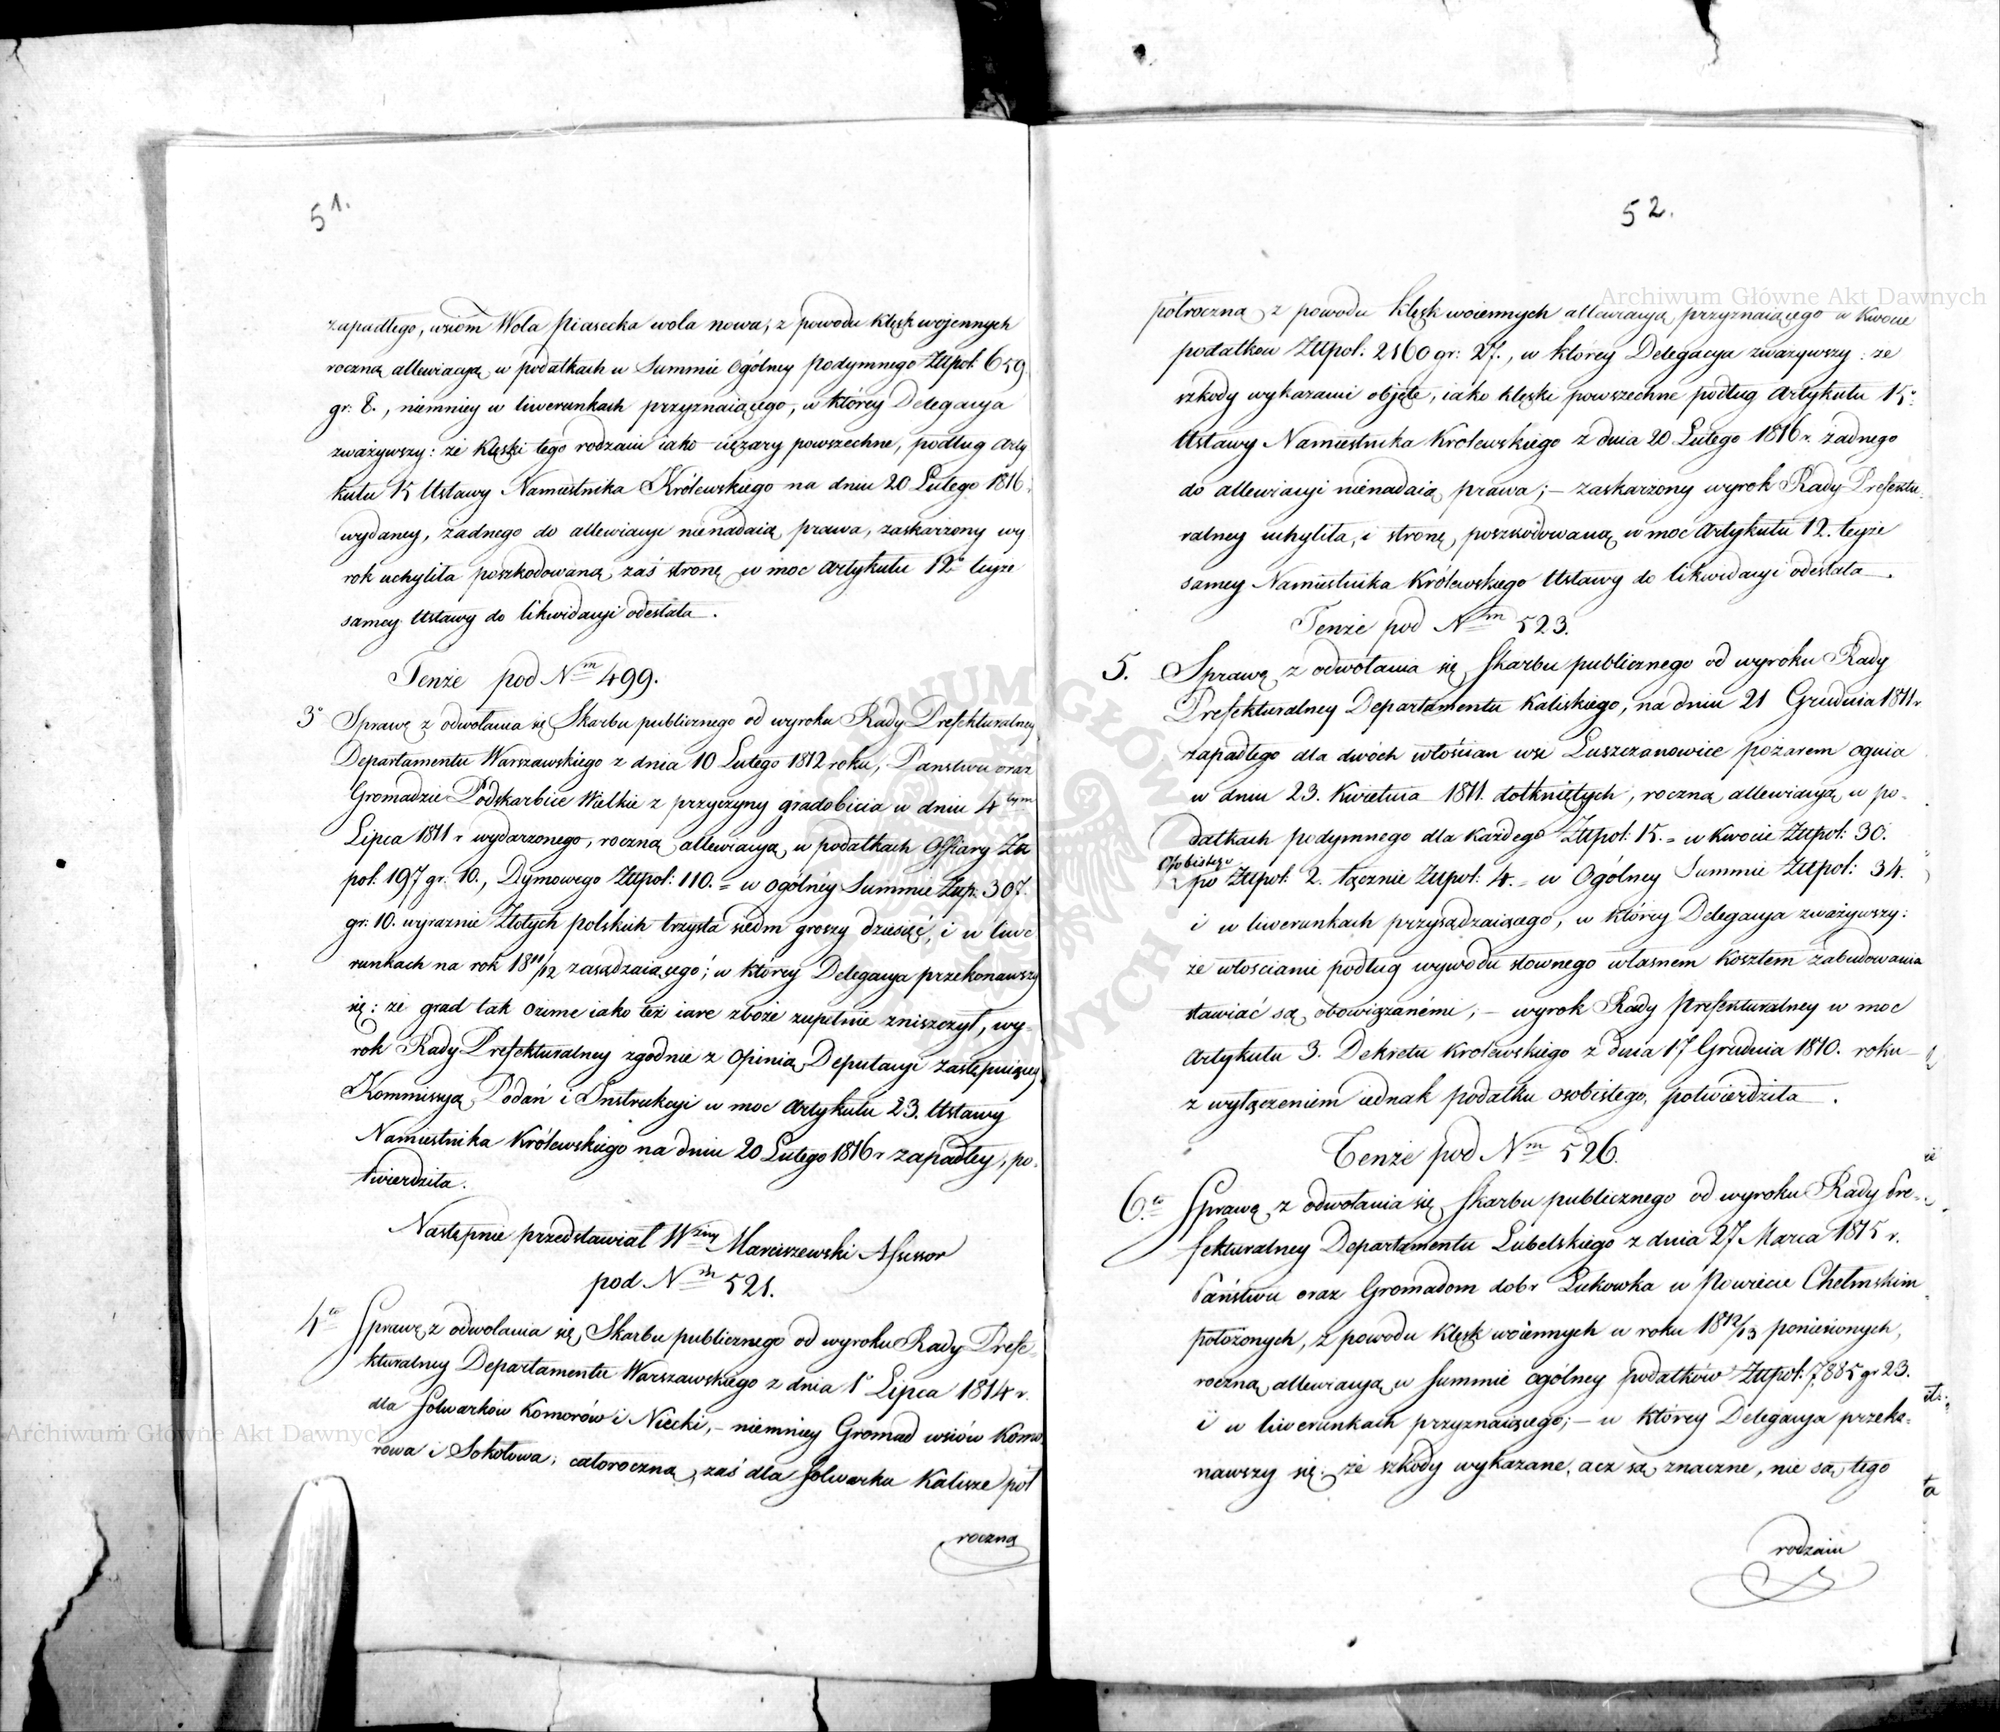 51.
zapadłego, wsiom Wola Piasecka wola nowa, z powodu klęsk wojennych
roczną allewiacyą w podatkach w Summie Ogólney podymnego Złłpol. 659
gr: 8., niemniey w liwerunkach przyznaiącego, w którey Delegacya
zważywszy: że klęski tego rodzaiu iako ciężary powszechne, podług Arty
kułu 15 Ustawy Namiestnika Królewskiego na dniu 20 Lutego 1816
wydaney, żadnego do allewiacyi nienadaią prawa, zaskarżony wy
rok uchyliła poszkodowaną zaś stronę w moc Artykułu 12o teyże
samey Ustawy do likwidacyi odesłała.
Tenże pod Nm 499.
3o Sprawę z odwołania się Skarbu publicznego od wyroku Rady Prefekturalney
Departamentu Warszawskiego z dnia 10 Lutego 1812 roku, Państwu oraz
Gromadzie Podskarbice Wielkie z przyczyny gradobicia w dniu 4tym
Lipca 1811 r wydarzonego, roczną allewiacyą w podatkach Offiary Złł
pol. 197 gr. 10., Dymowego Złłpol: 110. = w ogólney Summie Złłp. 307.
gr: 10. wyraźnie Złotych polskich trzysta siedm groszy dziesięć, i w liwe
runkach na rok 1811/12 zasądzaiącego; w którey Delegacya przekonawszy
się: że grad tak ozime iako też iare zboże zupełnie zniszczył, wy-
rok Rady Prefekturalney zgodnie z Opinią Deputacyi zastępuiącey
Kommissyą Podań i Instrukcyi w moc Artykułu 23. Ustawy
Namiestnika Królewskiego na dniu 20 Lutego 1816 r zapadłey, po-
twierdziła.
Następnie przedstawiał Wżny Marciszewski Assessor
pod Nm 521.
4to Sprawę z odwołania się Skarbu publicznego od wyroku Rady Prefe-
kturalney Departamentu Warszawskiego z dnia 1o Lipca 1814 r.
dla folwarków Komorów i Niecki, - niemniey Gromad wsiów Komo
rowa i Sokołowa, całoroczną, zaś dla folwarku Kalisze pół
roczną
52.
półroczną z powodu klęsk woiennych allewiacyą przyznaiącego w kwocie
podatków Złłpol. 2160 gr: 27., w którey Delegacya zważywszy: że
szkody wykazami objęte, iako klęski powszechne podług Artykułu 15o
Ustawy Namiestnika Królewskiego z dnia 20 Lutego 1816 r. żadnego
do allewiacyi nienadaią prawa; - zaskarżony wyrok Rady Prefektu
ralney uchyliła, i stronę poszkodowaną w moc Artykułu 12. teyże
samey Namiestnika Królewskiego Ustawy do likwidacyi odesłała.
Tenże pod Nm 523.
5. Sprawę z odwołania się Skarbu publicznego od wyroku Rady
Prefekturalney Departamentu Kaliskiego, na dniu 21 Grudnia 1811 r
zapadłego dla dwóch włościan wsi Łuszczanowice pożarem ognia
w dniu 23. Kwietnia 1811. dotkniętych, roczną allewiacyą w po-
datkach podymnego dla każdego Złłpol: 15. = w kwocie Złłpol: 30.
Osobistego
po Złłpol: 2. łącznie Złłpol: 4. = w Ogólney Summie Złłpol: 34.
i w liwerunkach przysądzaiącego, w którey Delegacya zważywszy:
że włościanie podług wywodu słownego własnem kosztem zabudowania
stawiać są obowiązanémi, - wyrok Rady Prefekturalney w moc
Artykułu 3. Dekretu Królewskiego z dnia 17 Grudnia 1810. roku
z wyłączeniem iednak podatku osobistego, potwierdziła.
Tenże pod Nm 526.
6.to Sprawę z odwołania się Skarbu publicznego od wyroku Rady Pre-
fekturalney Departamentu Lubelskiego z dnia 27 Marca 1815 r.
Państwu oraz Gromadom dobr Łukowka w Powiecie Chełmskim
położonych, z powodu klęsk woiennych w roku 1812/13 poniesionych,
roczną allewiacyą w Summie ogólney podatków Złłpol: 7,885 gr 23.
i w liwerunkach przyznaiącego; - w którey Delegacya przeko-
nawszy się: że szkody wykazane, acz są znaczne, nie są tego
rodzaiu
Archiwum Główne Akt Dawnych
Archiwum Główne Akt Dawnych